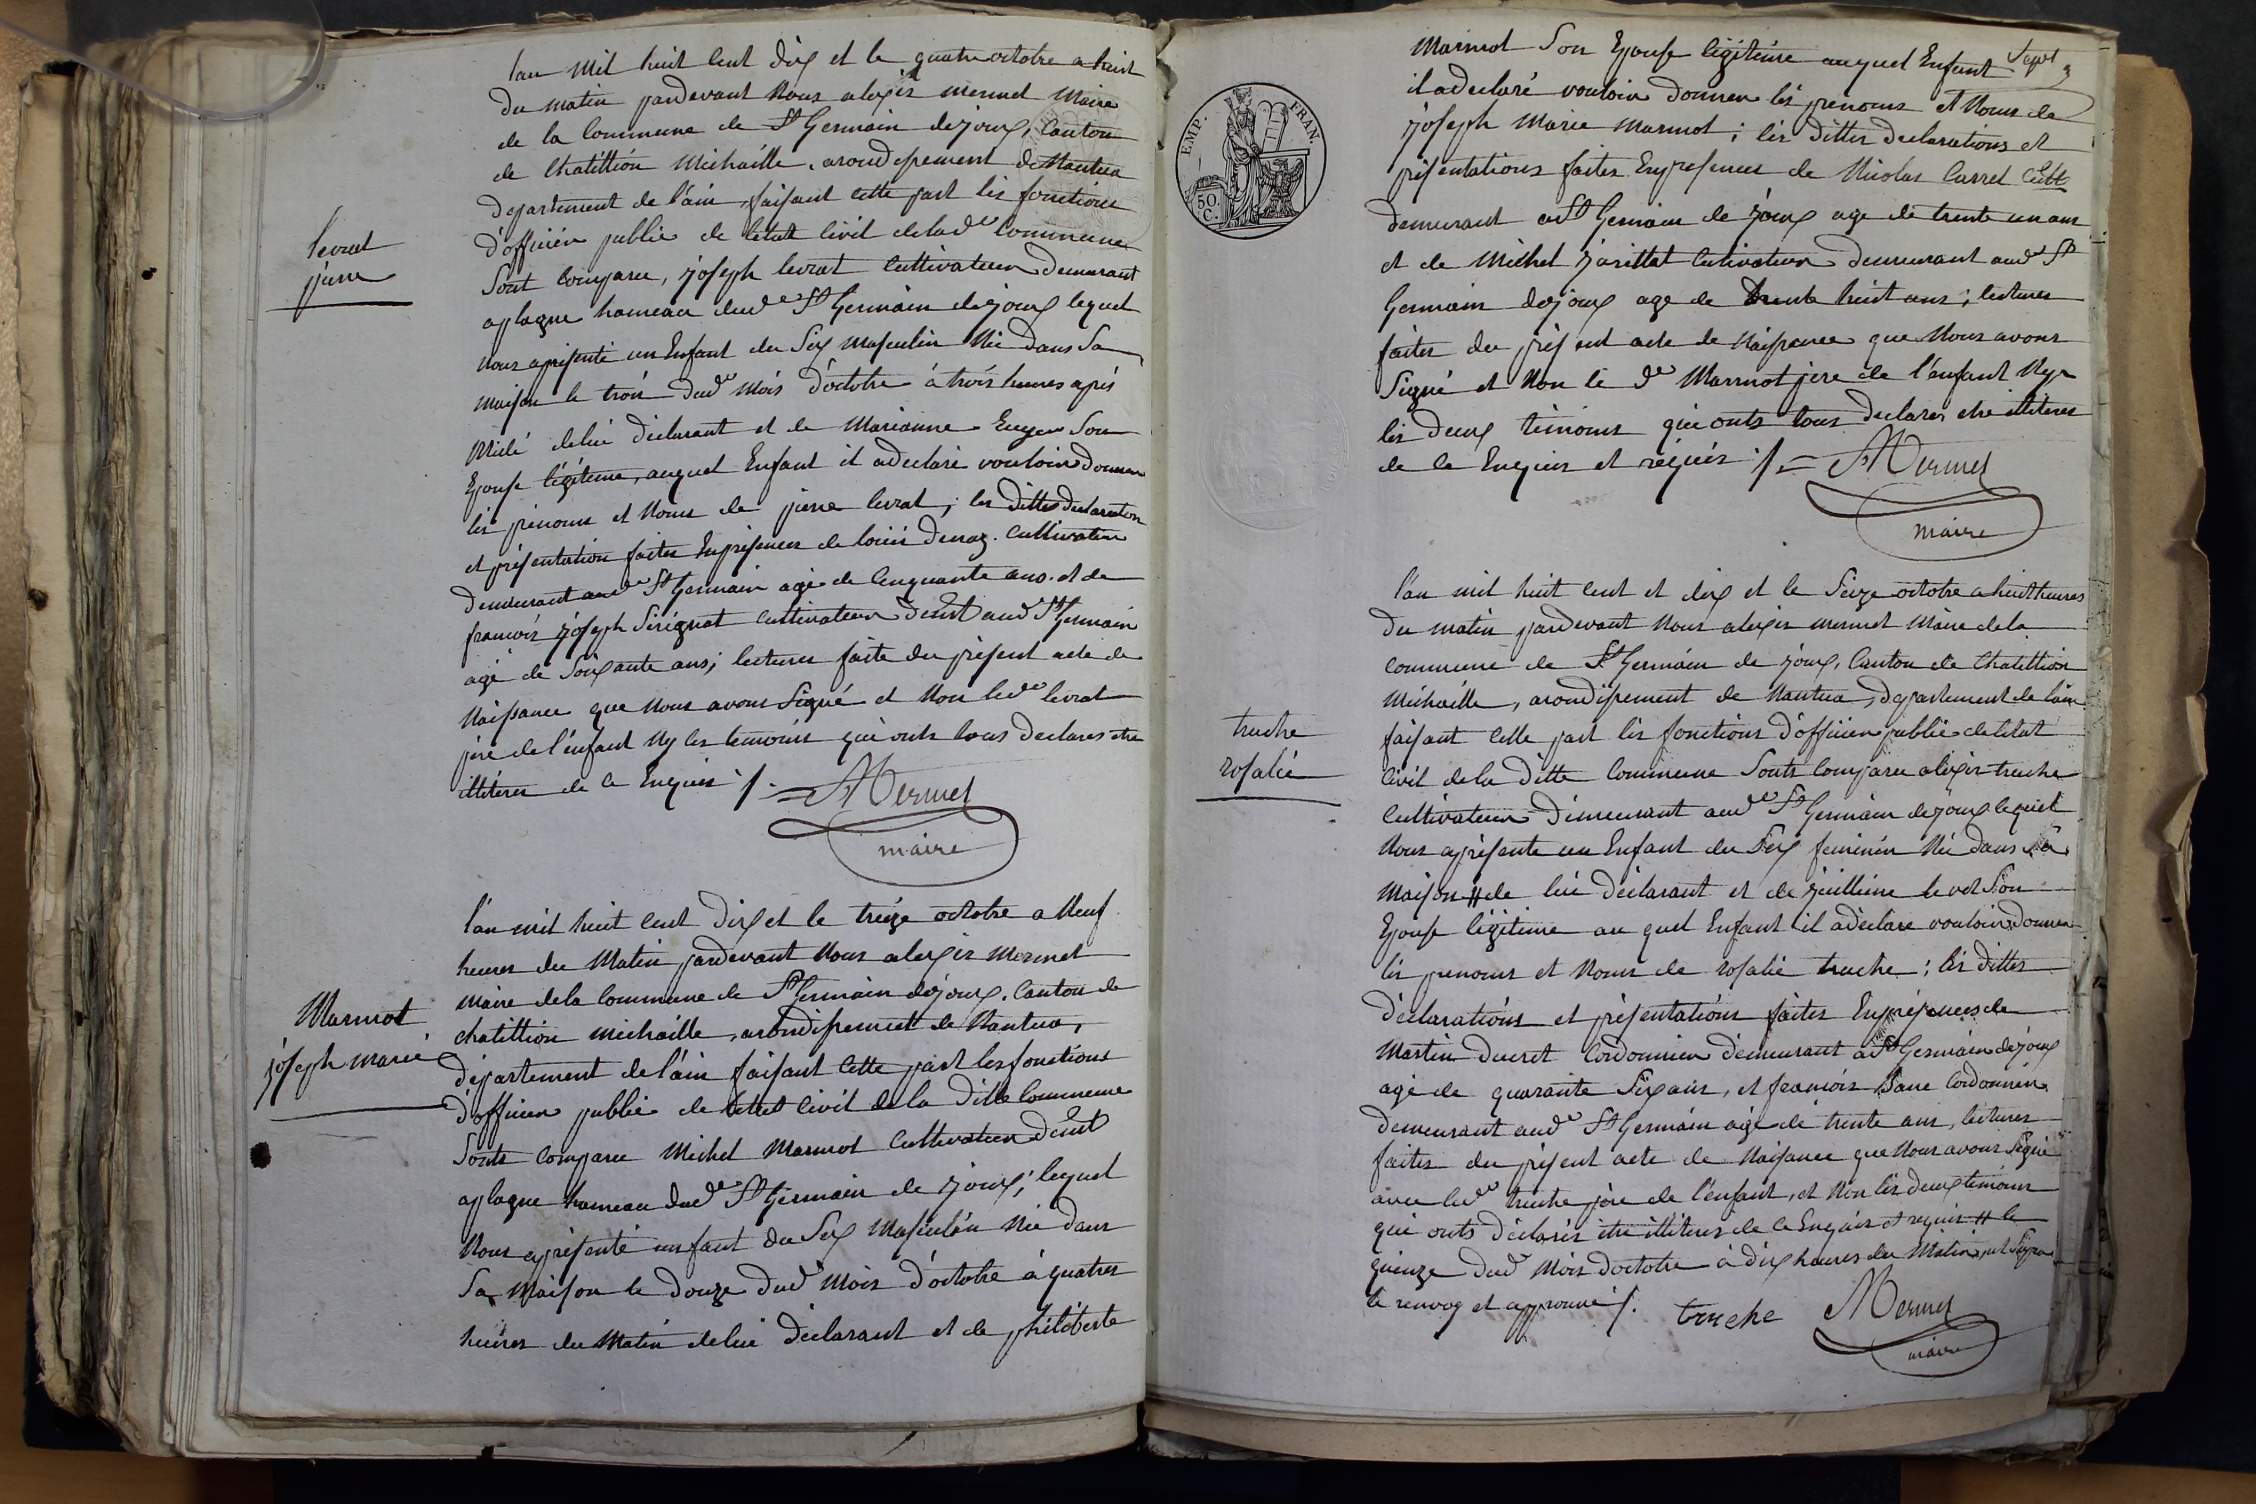 l'an mil huit cent dix et le quatre octobre a huit
du matin pardevant Nous alexis mermet Maire
de la Commune de St Germain dejoux, Canton
de Chatillion Michaille, arondissement de Nantua
departement de l'ain, faisant cette part les fonctions
d'officier public de letat Civil de lade Commune
Sont comparu, joseph levrat Cultivateur demeurant
levrat
pierre
aplagne hameau dud St Germain dejoux lequel
nous a présenté un Enfant du Sex masculin Né dans Sa
maison le trois dud mois d'octobre à trois heures après
Midi delui déclarant et de Marianne Son
Epouse légitime, auquel Enfant il adeclaré vouloir donner
les prénoms et Noms de pierre levrat; les dittes declaration
et présentation faites Enprésences de louis Cultivateur
demeurant aud St Germain agé de Cinquante ans. et de
francois joseph Cultivateur demt aud St Germain
agé de Soixante ans; lectures faite du présent acte de
Naissance que Nous avons Signé et Non led levrat
père de l'enfant Ny les temoins qui onts tous declares etre
illitéres de ce Enquis /. AMermet
maire
l'an mil huit cent Dix et le treize octobre a Neuf
heures du Matin pardevant Nous alexis Mermet
maire dela Commune de St Germain dejoux. Canton de
chatillion michaille, arondissement de Nantua,
Marmot
joseph marie
département de l'ain faisant Cette part les fonctions
d'officier public de letat Civil de la Ditte Commune
Sonts Comparu Michel Marmot Cultivateur demt
aplagne hameau dud St Germain de joux; lequel
Nous a présenté enfant du Sex Masculin Né dans
Sa Maison le Douze dud Mois d'octobre à quatres
heures du Matin delui déclarant et de philiberte
Sept
Marmot Son Epouse légitime auquel Enfant
il adeclaré vouloir donner les prenoms et Noms de
joseph Marie Marmot; les dittes declarations et
présentations faites Enpresences de Nicolas Carrel Cult
demeurant a St Germain de joux age de trente un ans
et de Michel Cultivateur demeurant aud St
Germain dejoux age de trente huit ans; lectures
faites du présent acte de Naissance que Nous avons
Signé et Non le d Marmot père de l'enfant Ny
les deux témoins qui onts tous declares etre illiteres
de ce Enquis et réquis /. AMermet
maire
l'an mil huit cent et dix et le Seize octobre a huit heures
du matin pardevant Nous alexis mermet Maire dela
commune de St Germain de joux, Canton de Chatillion
Michaille, arondissement de Nantua, departement de l'ain
truche
rosalie
faisant Cette part les fonctions d'officier public de letat
Civil de la ditte Commune Sonts Comparu alexis truche
Cultivateur demeurant aud St Germain dejoux lequel
Nous a présenté un Enfant du Sex feminin Né dans Sa
Maison # de lui declarant et de Son
Epouse légitime au quel Enfant il adéclare vouloir donner
les prenoms et Noms de rosalie truche; les dittes
déclarations et présentations faites Enprésences de
Martin ducret Cordonnier demeurant à St Germain dejoux
agé de quarante Six ans, et francois Cordonnier
demeurant aud St Germain agé de trente ans, lectures
faites du présent acte de Naissance que Nous avons Signé
avec led truche père de l'enfant, et Non les deux témoins
qui onts déclarés être illiteres de ce Enquis et requis # le
quinze dud Mois d'octobre à dix heures du Matin
le renvoy et approuvé /. truche AMermet
maire
EMP. FRAN.
50. C.